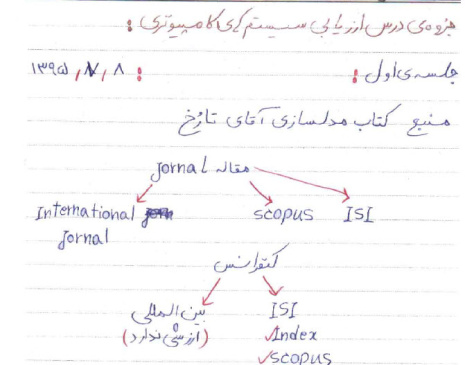 جزوه‌ی درس ارزیابی سیستم‌های کامپیوتری :
جلسه‌ی اول : ۱۳۹۵/۷/۸
منبع کتاب مدلسازی آقای تارخ
مقاله Jornal
International Jornal
scopus
ISI
کنفرانس
بین المللی
(ارزشی ندارد)
ISI
✓Index
✓scopus